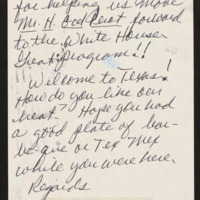 for helping us move
Mr. H. forward
to the White House
Great Program!!
Welcome to Texas!
How do you like our
heat? Hope you had
a good plate of bar-
be-que or Tex Mex
while you were here.
Regards